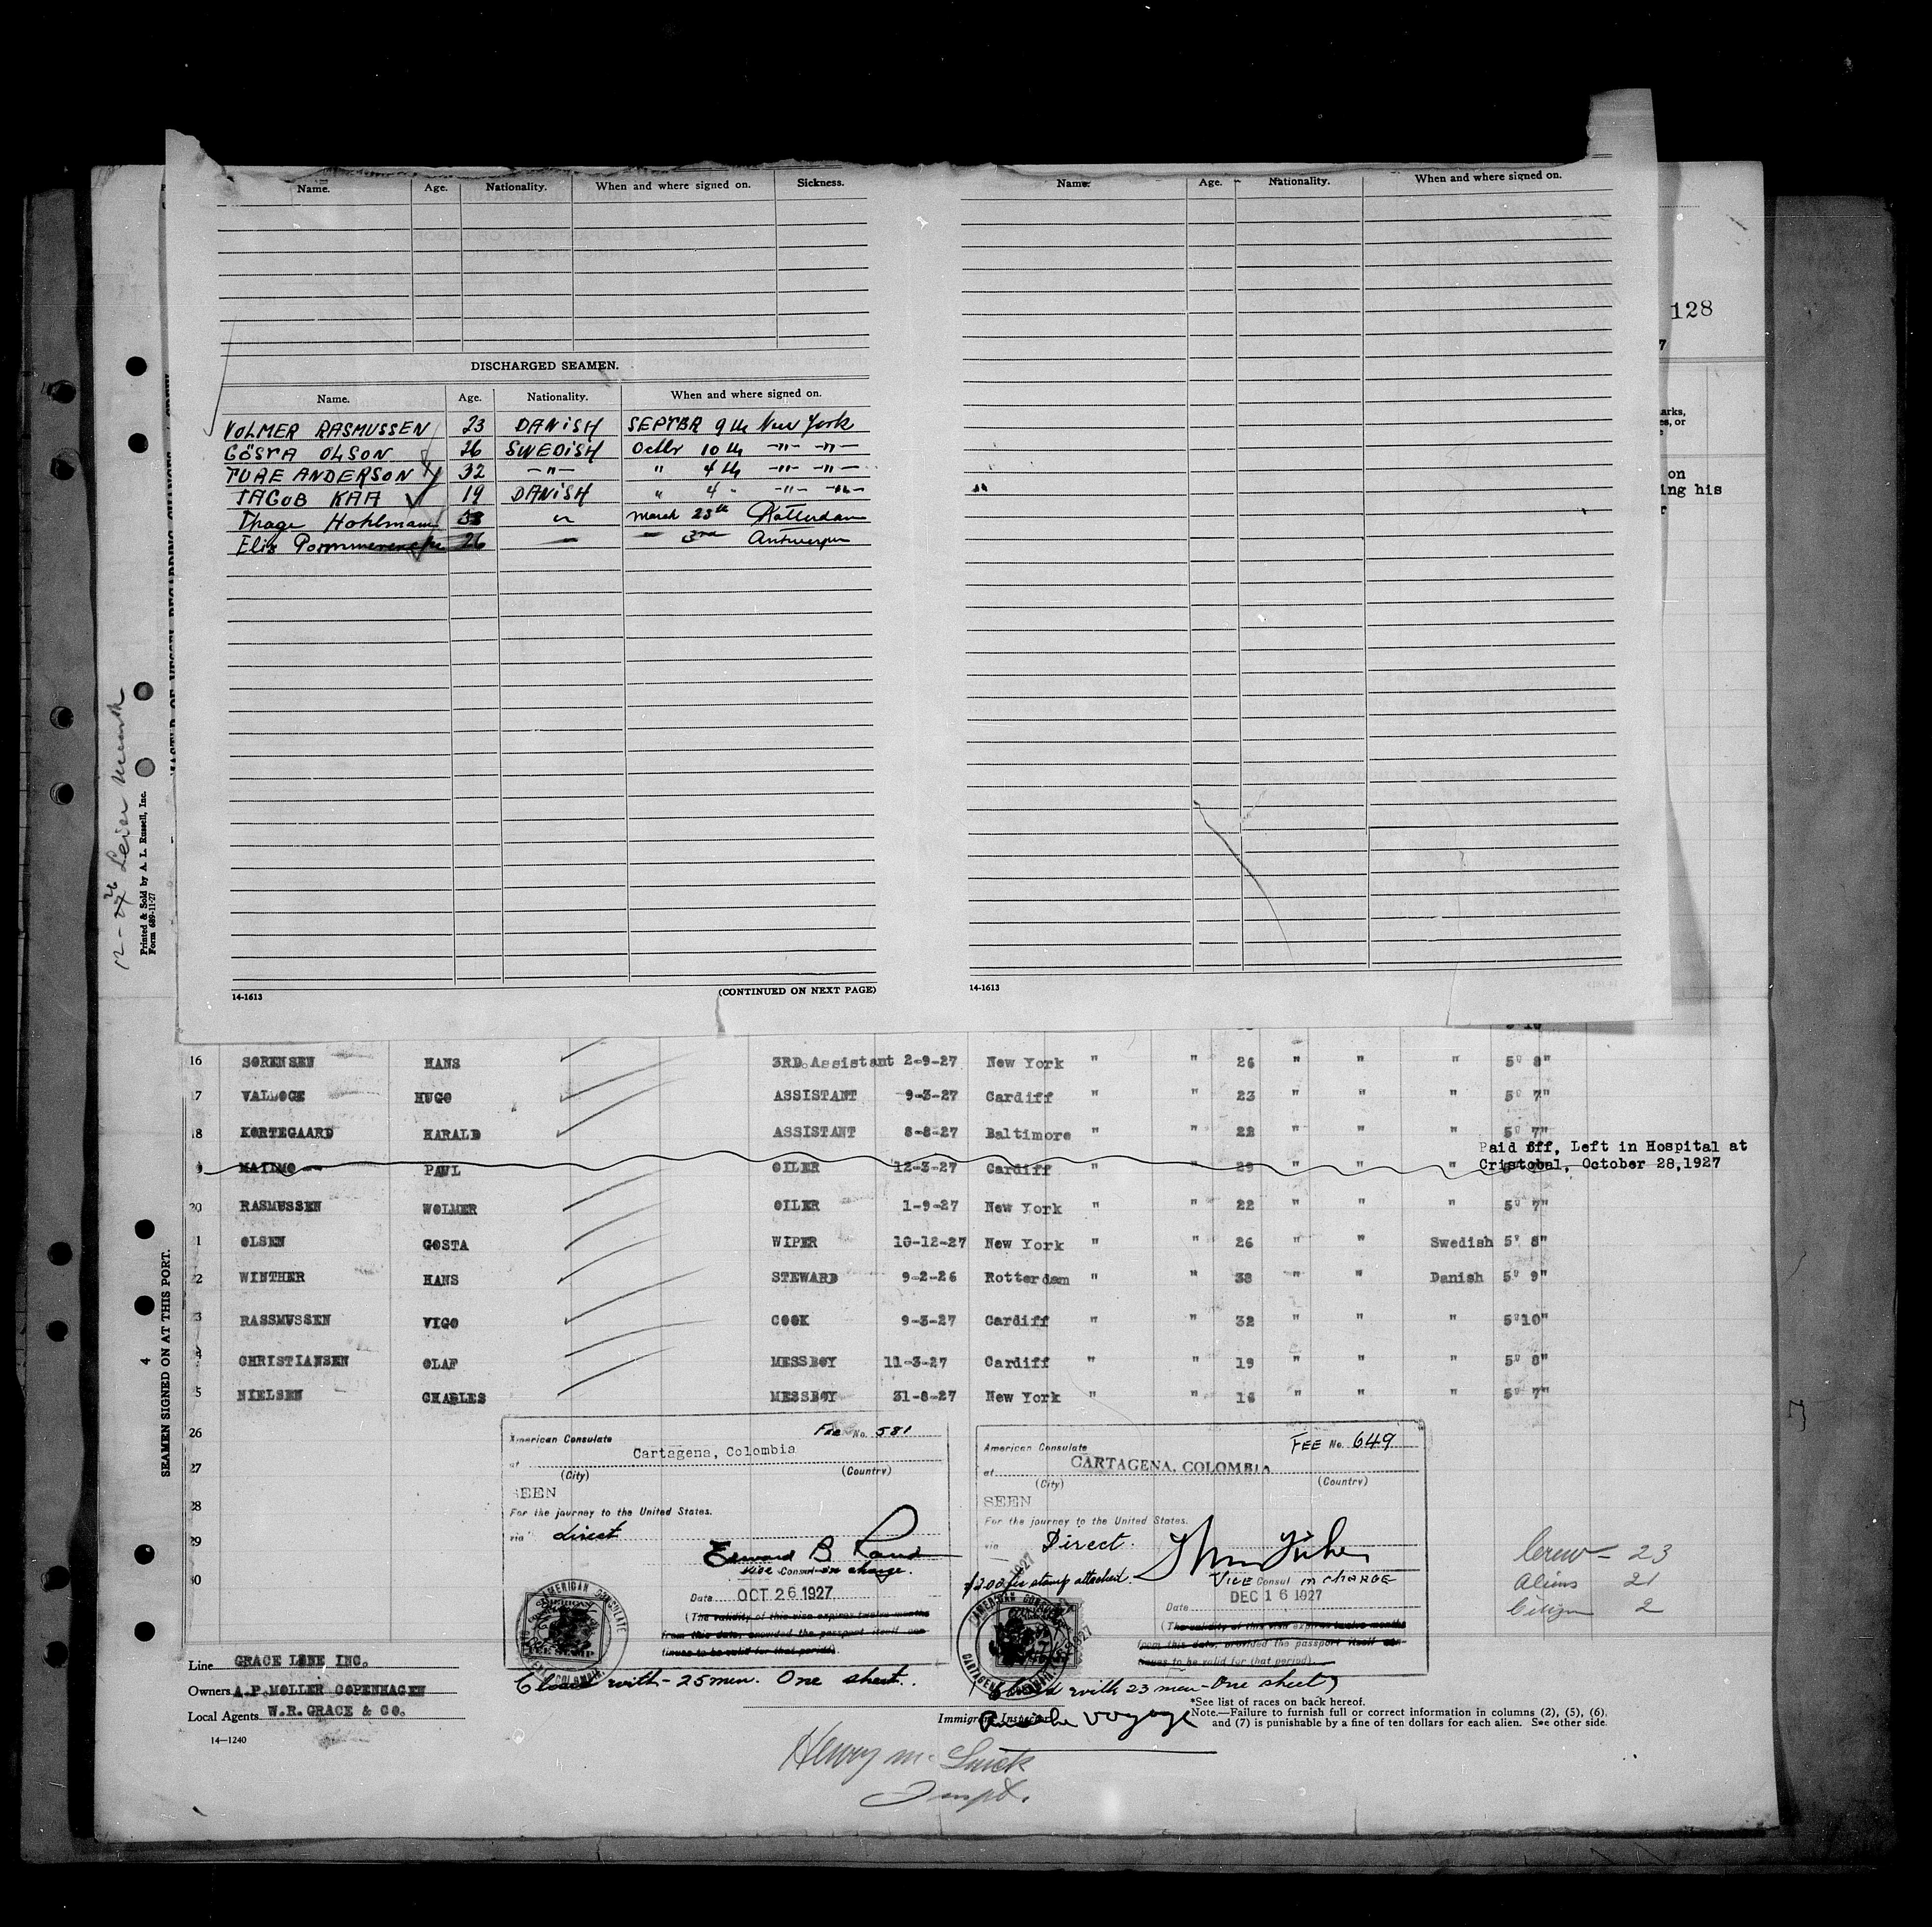 Name. Age. Nationality. When and where signed on. Sickness.
DISCHARGED SEAMEN.
Name. Age. Nationality. When and where signed on.
VOLMER RASMUSSEN 23 DANISH SEPTBR 9th New York
GÖSTA OLSON 26 SWEDISH Octbr 10th -"- -"-
TURE ANDERSON 32 -"- " 4th -"- -"-
JACOB KAA 19 DANISH " 4 " -"- -"-
Thage Hohlmann 33 " March 23th Rotterdam
Elis 26 3rd Antwerpen
14-1613 (CONTINUED ON NEXT PAGE)
Name. Age. Nationality. When and where signed on.
14-1613
128
7
arks,
es, or
e
on
ing his
r
Printed & Sold by A. L. Russell, Inc.
Form 689-11-27
SEAMEN SIGNED ON AT THIS PORT.
4
16 SØRENSEN HANS 3RD.Assistant 2-9-27 New York " " 26 " " " 5' 8"
17 VALLOGE HUGO ASSISTANT 9-3-27 Cardiff " " 23 " " " 5' 7"
18 KORTEGAARD HARALD ASSISTANT 8-8-27 Baltimore " " 22 " " " 5' 7"
Paid off, Left in Hospital at
9 PAUL OILER 12-3-27 Cardiff " " 29 " " " Cristobal, October 28,1927
20 RASMUSSEN WOLMER OILER 1-9-27 New York " " 22 " " " 5' 7"
1 OLSEN GOSTA WIPER 10-12-27 New York " " 26 " " Swedish 5' 8"
2 WINTHER HANS STEWARD 9-2-26 Rotterdam " " 38 " " Danish 5' 9"
3 RASSMUSSEN VIGO COOK 9-3-27 Cardiff " " 32 " " " 5'10"
4 CHRISTIANSEN OLAF MESSBOY 11-3-27 Cardiff " " 19 " " " 5' 8"
5 NIELSEN CHARLES MESSBOY 31-8-27 New York " " 16 " " " 5' 7"
26
27
28
29
30
American Consulate Fee No. 581
at Cartagena, Colombia
(City) (Country)
SEEN
For the journey to the United States.
via direct
Edward B Rand
Vice Consul in charge.
Date OCT 26 1927
(The validity of this visa expires twelve months
from this date, provided the passport itself con-
tinues to be valid for that period).
AMERICAN CONSULATE
Closed with - 25 men. One sheet.
American Consulate FEE No. 649
at CARTAGENA, COLOMBIA
(City) (Country)
SEEN
For the journey to the United States.
via Direct.
$2.00 fee stamp attached.
Vice Consul in charge
Date DEC 16 1927
(The validity of this visa expires twelve months
from this date, provided the passport itself con-
tinues to be valid for that period).
AMERICAN CONSULATE
Closed with 23 men - One sheet
voyage
Crew - 23
Aliens 21
Citizen 2
Line GRACE LINE INC.
Owners A.P.MOLLER COPENHAGEN
Local Agents W.R.GRACE & CO.
14-1240
Immigrant Inspector
*See list of races on back hereof.
Note.—Failure to furnish full or correct information in columns (2), (5), (6),
and (7) is punishable by a fine of ten dollars for each alien. See other side.
Henry M.
Inspt.